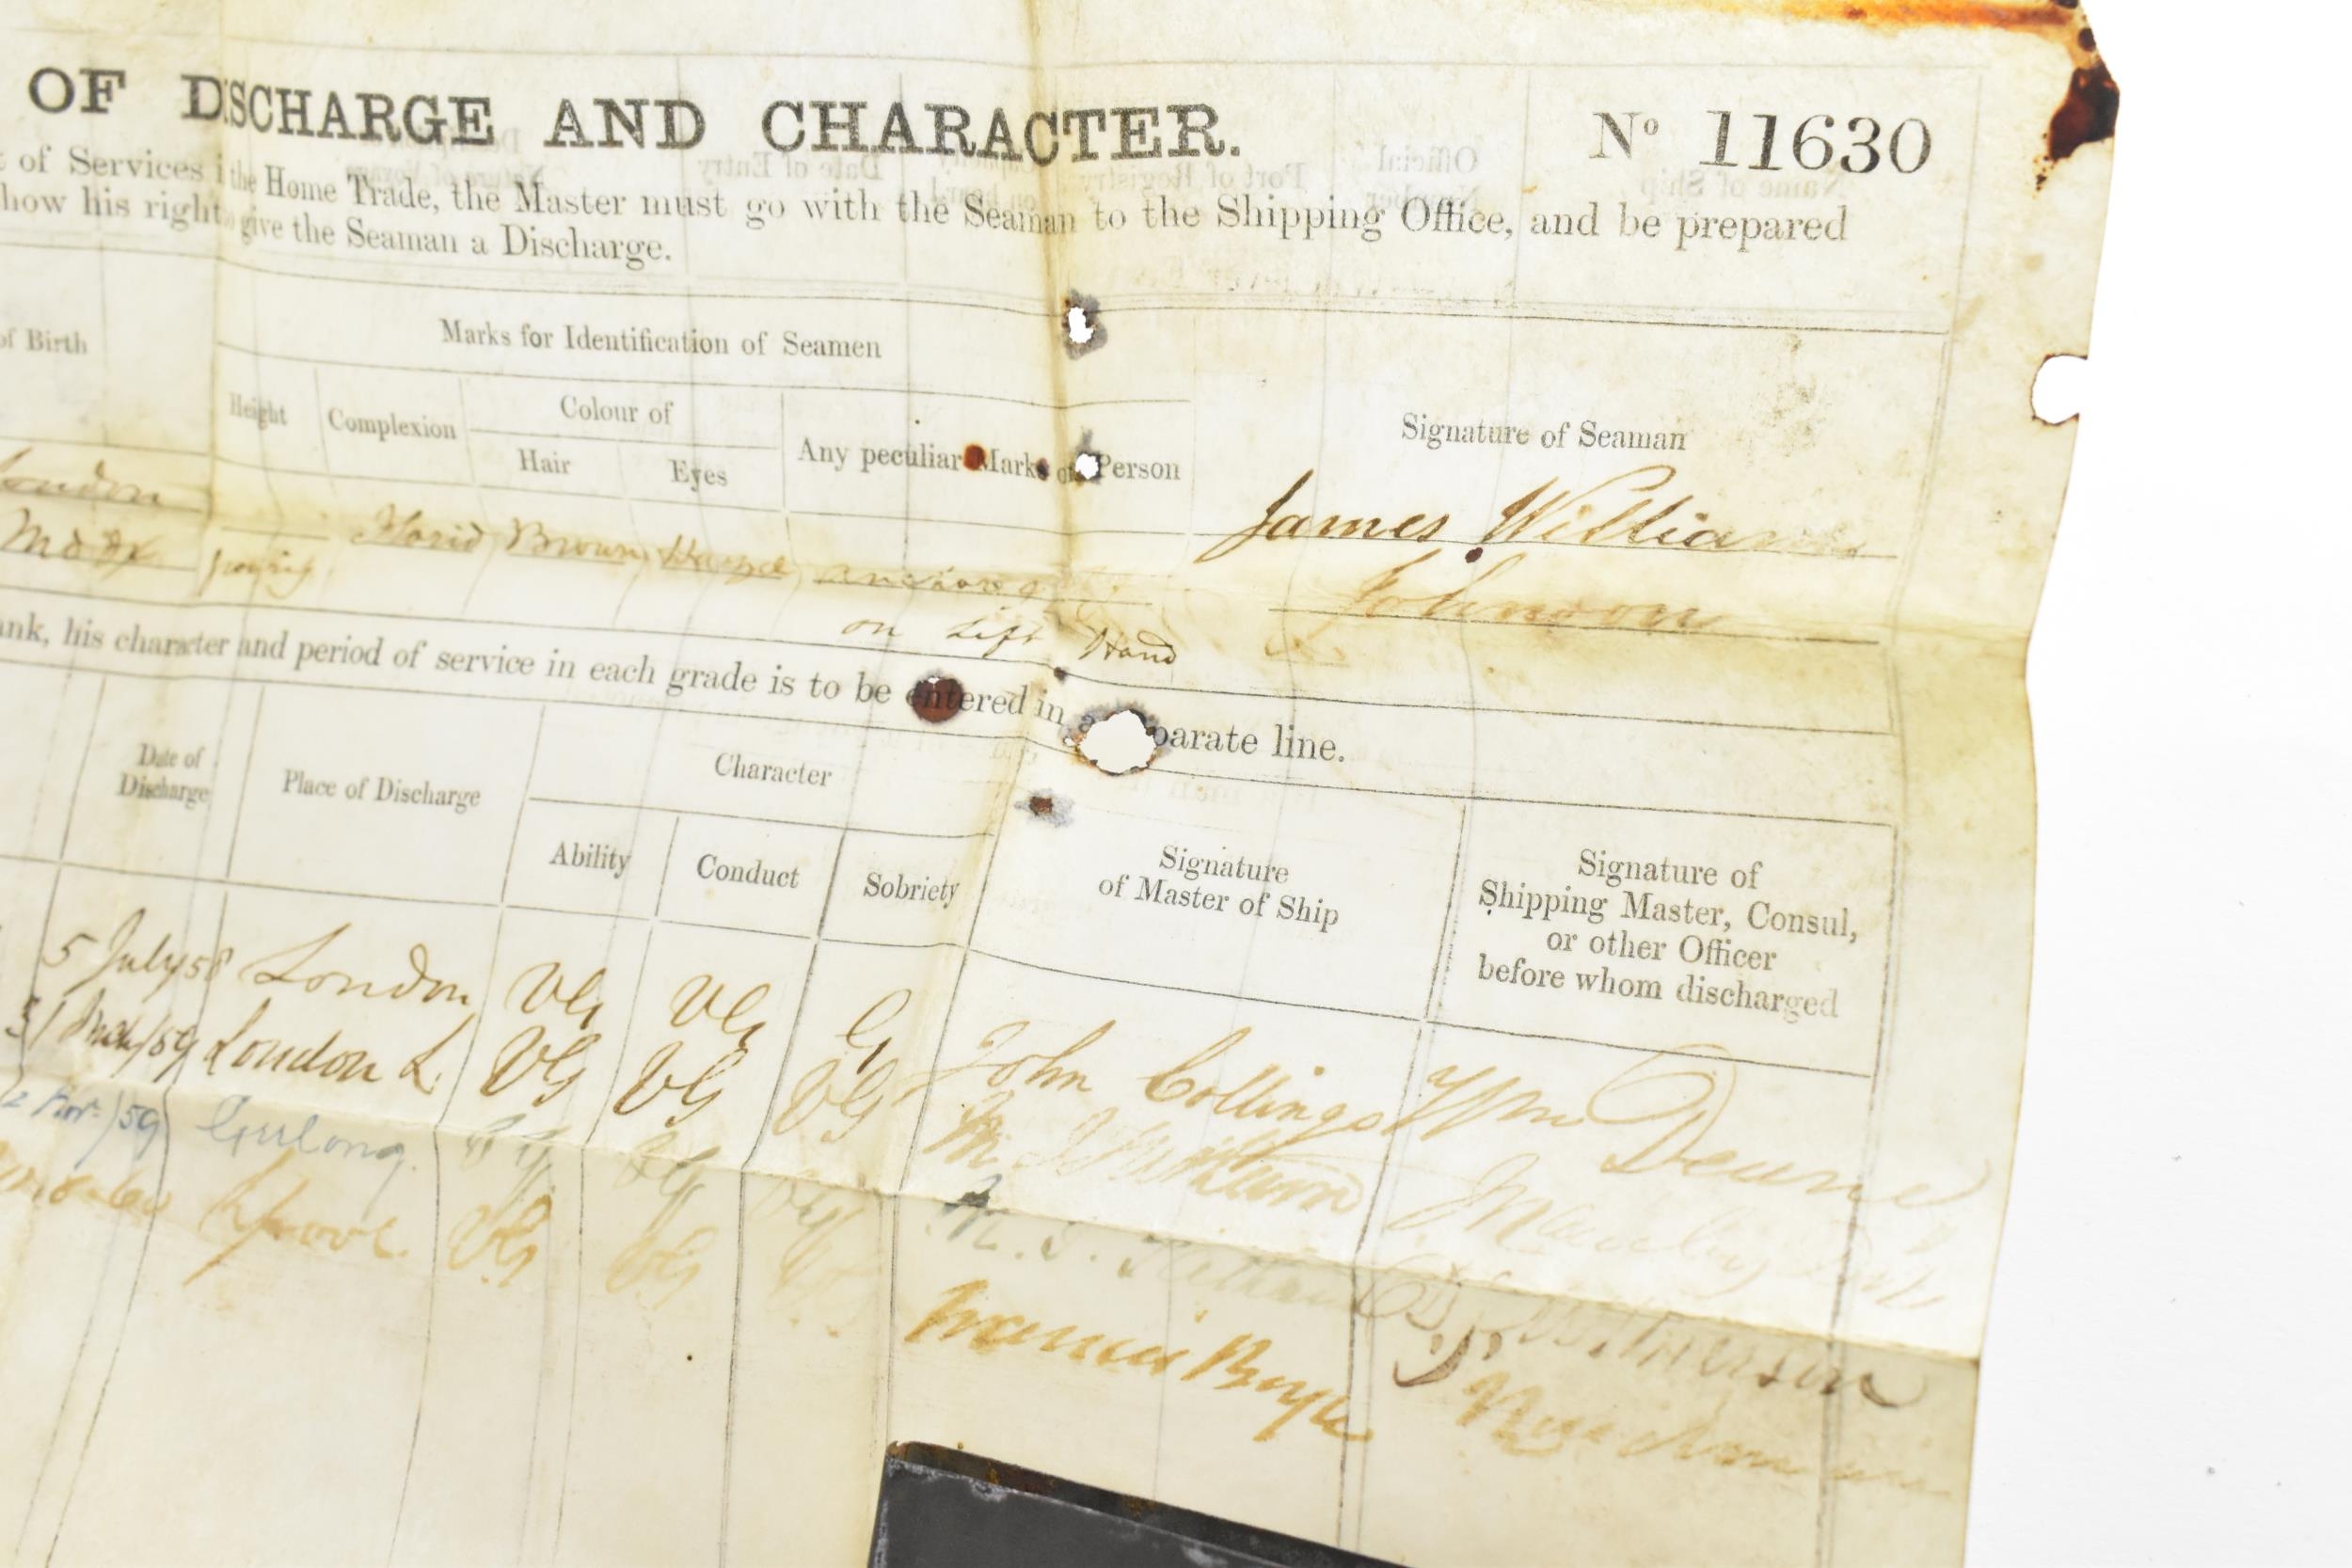 OF DISCHARGE AND CHARACTER.
No 11630
of Services i the Home Trade, the Master must go with the Seaman to the Shipping Office, and be prepared
how his right give the Seaman a Discharge.
of Birth
Marks for Identification of Seamen
Signature of Seaman
Height
Complexion
Colour of
Hair
Eyes
Any peculiar Marks on Person
London
Florid Brown Hazel anchor
on Left Hand
James William
Johnson
ank, his character and period of service in each grade is to be entered in a parate line.
Date of
Discharge
Place of Discharge
Character
Ability
Conduct
Sobriety
Signature
of Master of Ship
Signature of
Shipping Master, Consul,
or other Officer
before whom discharged
5 July/58 London VG VG G John Collings Wm Deane
31 Mch/59 London L. VG VG VG
/59 Geelong VG VG VG
VG VG Francis Boyle